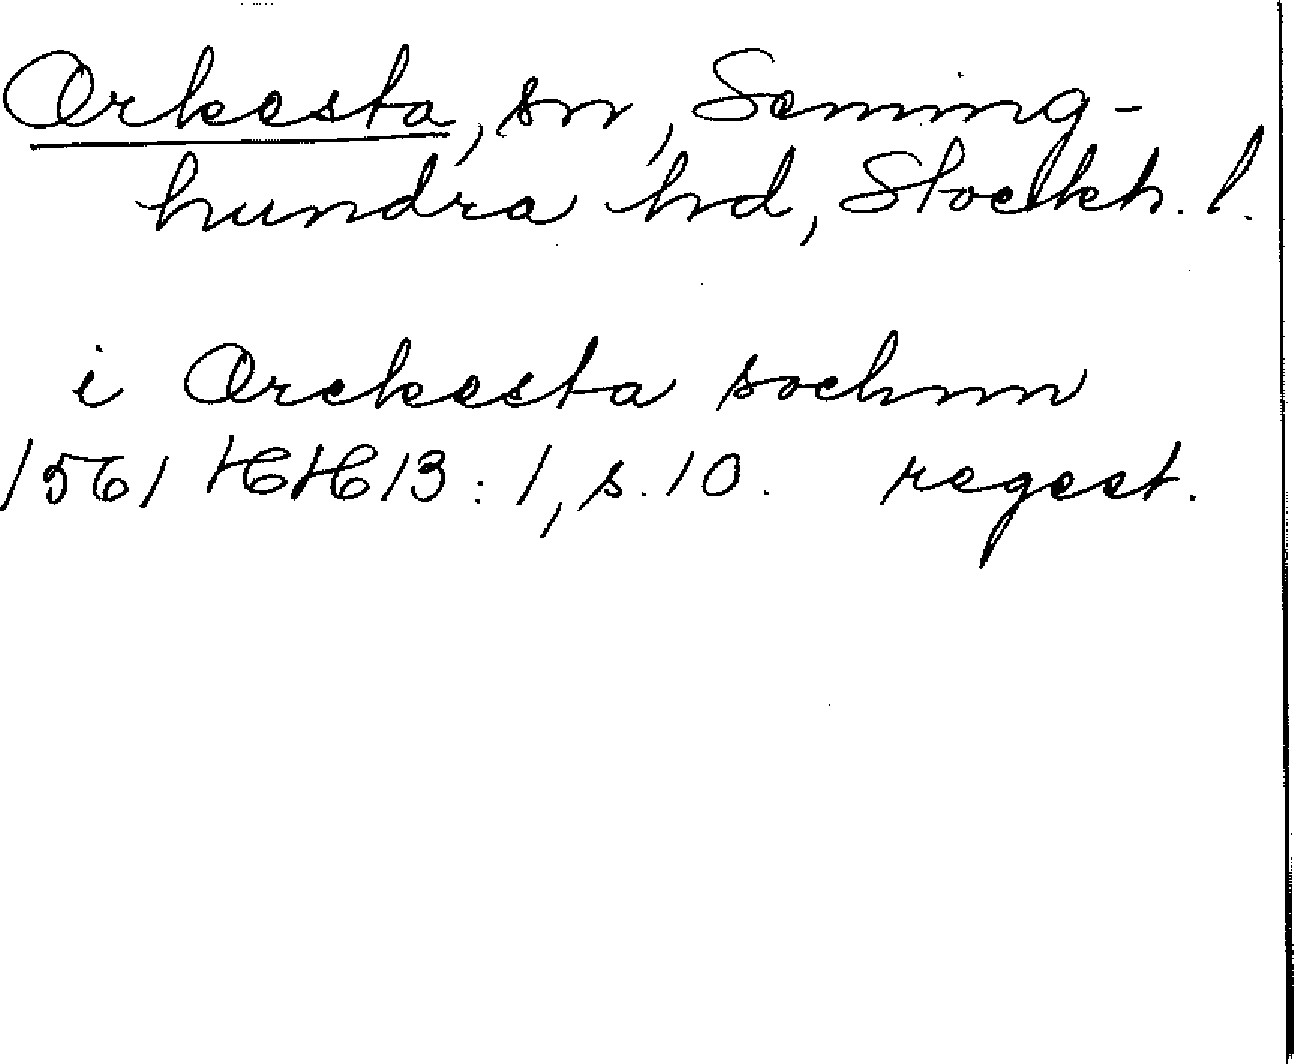 Orkesta, sn, Seming-
hundra hd, Stockh. l.
i Orckesta sochnn
1561 HH 13:1, s. 10. regest.